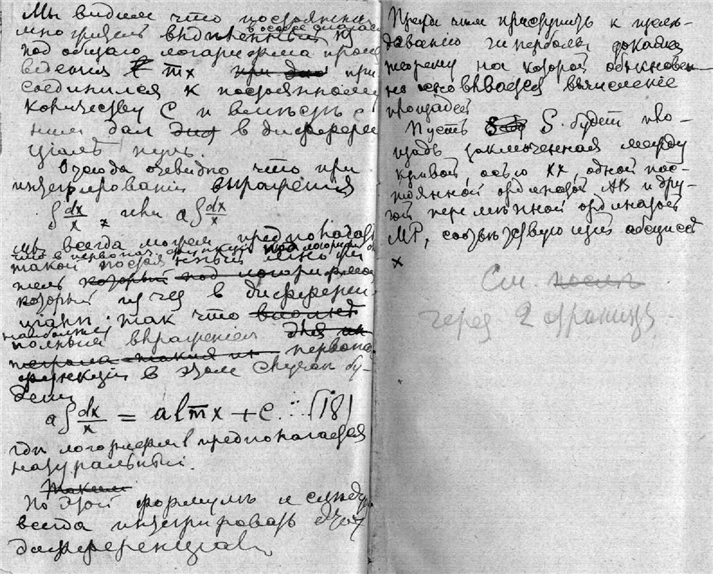 Мы видимъ что постоянный
множитель введенный въ
подъ общаго логарифма произ
ведения mx при
соединился къ постоянному
количеству С и вместе съ
нимъ далъ въ дифферен
циале нуль.
Отсюда очевидно что при
интегрировании выражения
∫ dx/x , или a∫ dx/x
мы всегда можемъ предполагать
такой постоянный множи
тель который подъ логарифмом
который исчез въ дифферен
циале; такъ что
наиболее
полныя выражения
первона
функции въ этомъ случае бу
детъ
a∫ dx/x = alm̅x + c ∴ (18)
где логарифмъ предполагается
натуральный.
Такимъ
По этой формуле и следу
всегда интегрировать этотъ
дифференциалъ
Прежде чемъ приступить къ изсле-
дованию гиперболы докажемъ
теорему на которой обыкновен
но основывается вычисление
площадей
Пусть S будетъ пло
щадь заключенная между
кривой, осью xx одной пос
тоянной ординатой AB и дру
гой переменной ординатой
MP, соответствующей абсциссе
x
См. после
через 2 страницы